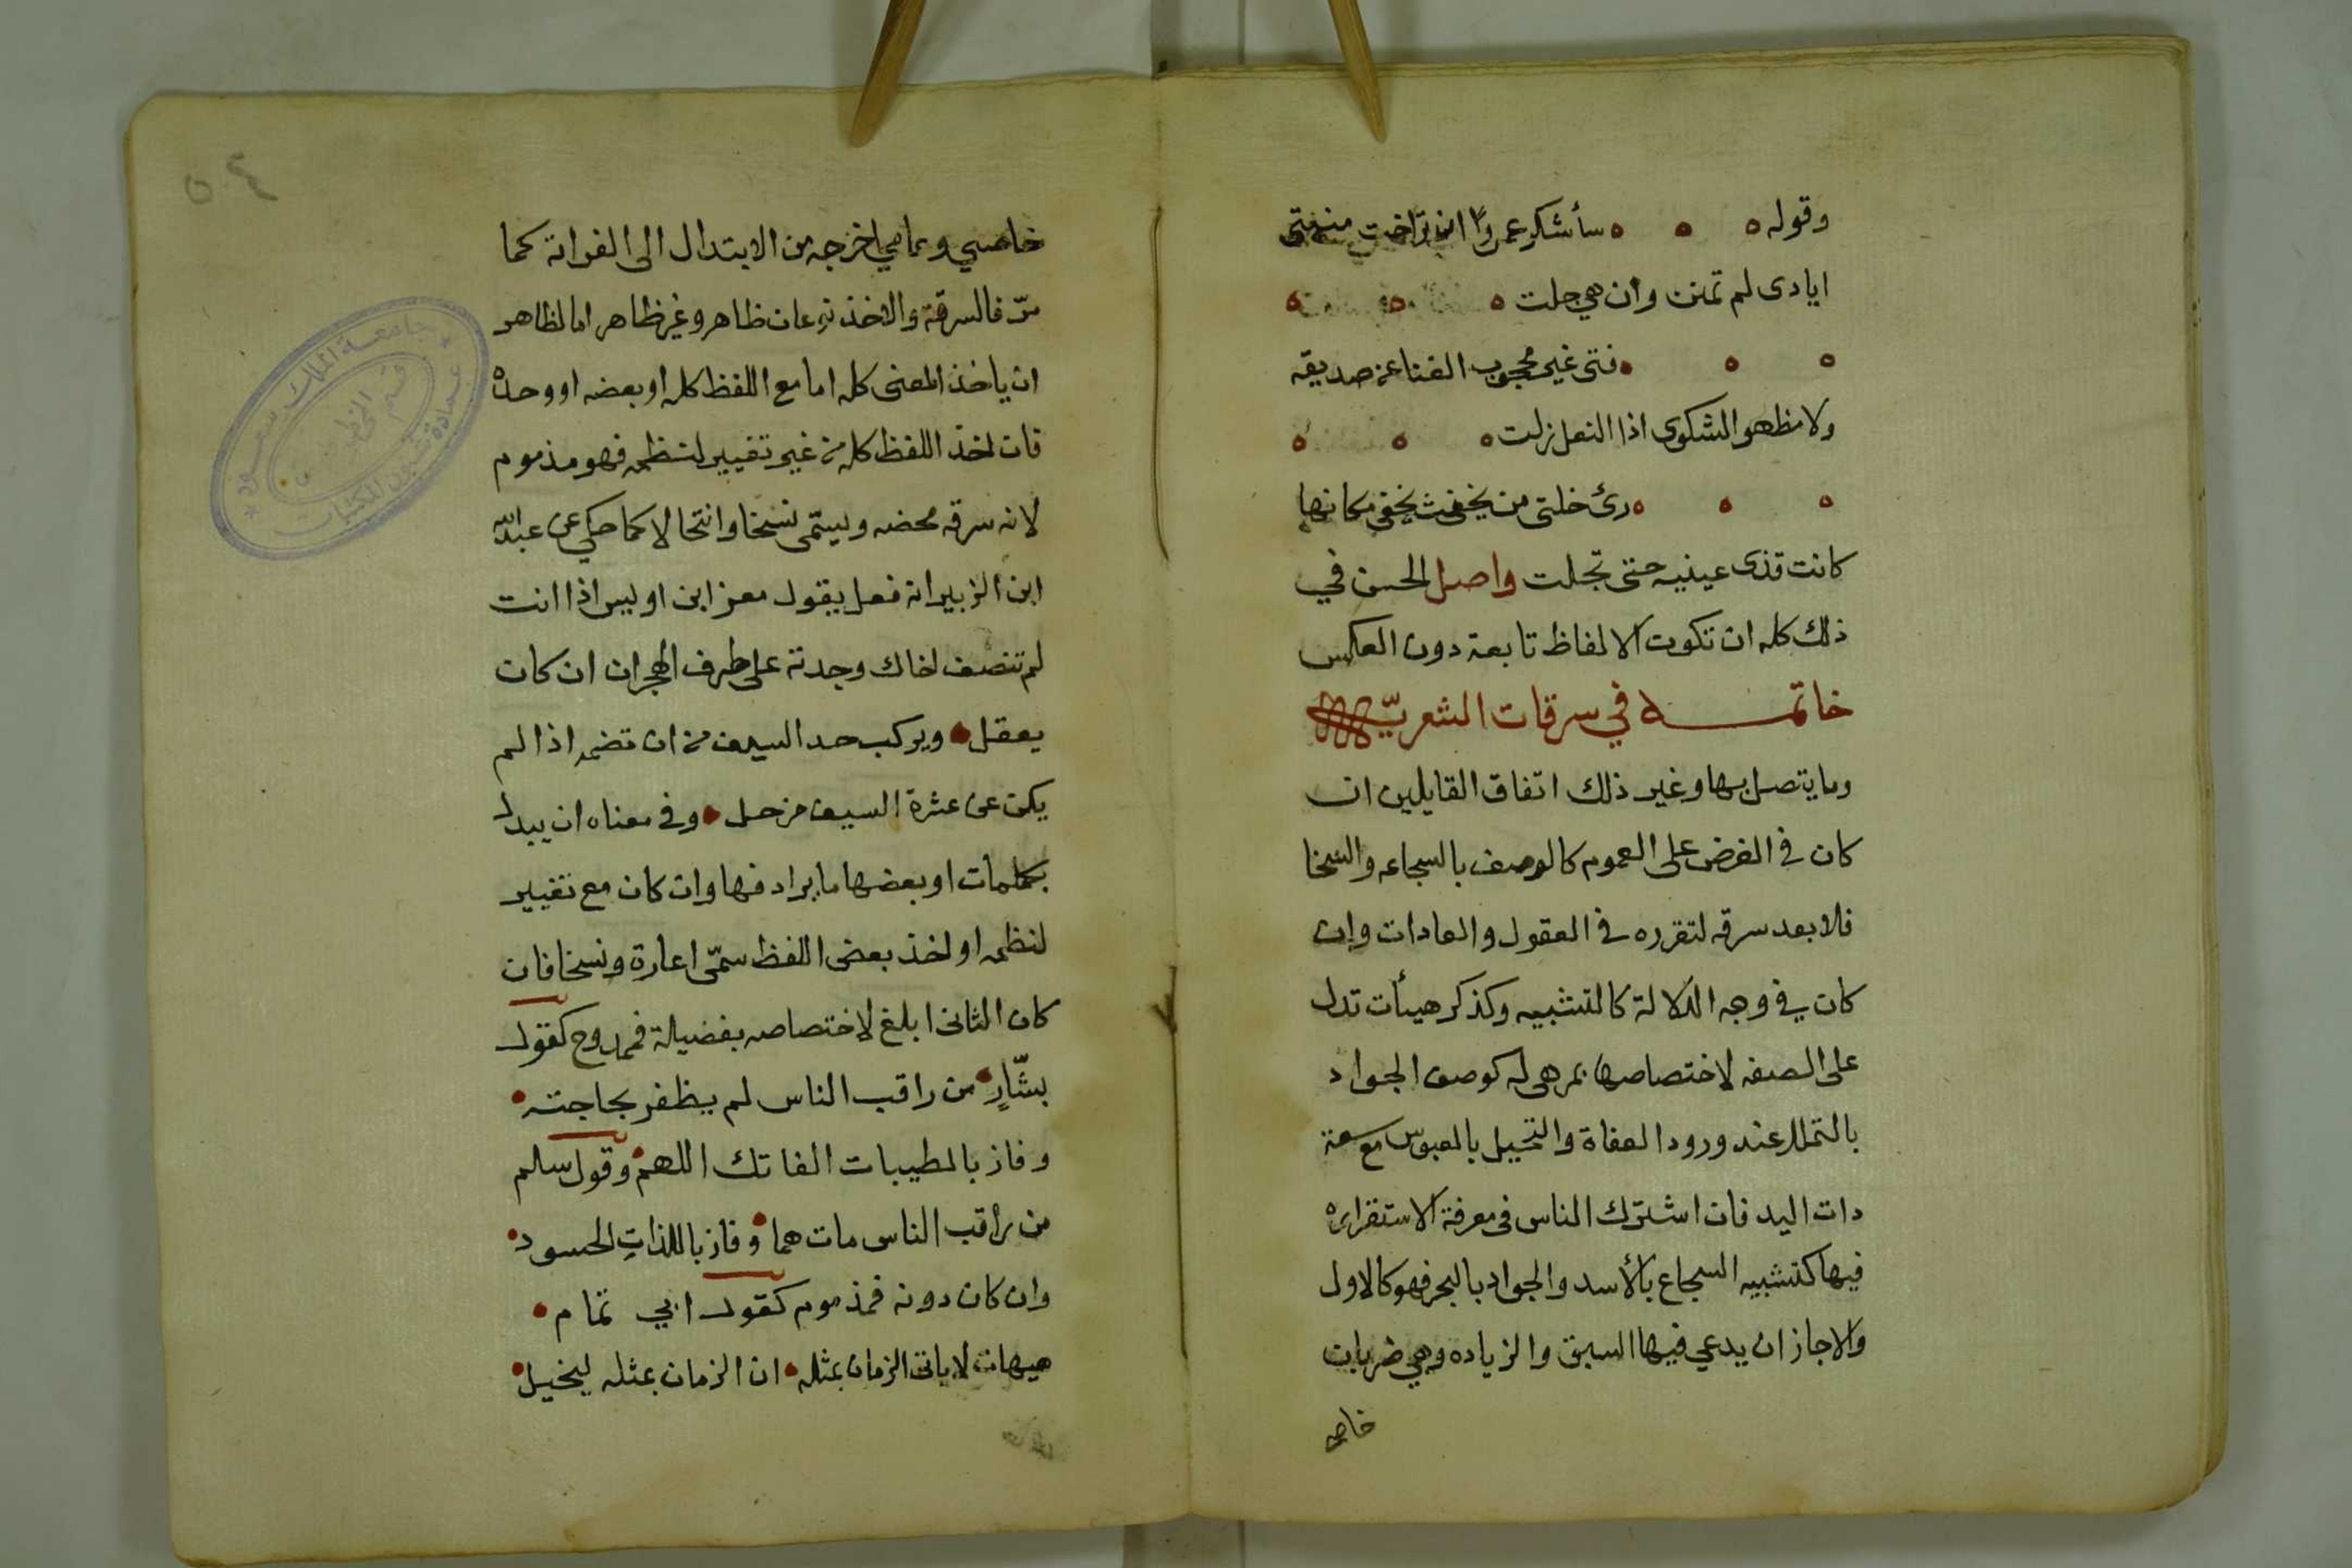 وقوله ه ه ه سأشكر عمروًا ان تراخت منيتى
ايادى لم تمنن وان هي جلت ه ه ه
ه ه ه فتى غير محجوب الغنا عن صديقه
ولا مظهر الشكوى اذا النعل زلت ه ه ه
ه ه ه رئ خلتى من حيث يخفى مكانها
كانت قذى عينيه حتى تجلت واصل الحسن في
ذلك كله ان تكون الالفاظ تابعة دون العكس
خاتمـــه في سرقات الشعريّه
وما يتصل بها وغير ذلك اتفاق القايلين ان
كان في الغرض على العموم كالوصف بالسجاعه والسخا
فلا بعد سرقه لتقرره في العقول والعادات وان
كان في وجه الدلالة كالتشبيه وكذكر هيأت تدل
على الصفه لاختصاصها بمن هي له كوصف الجواد
بالتهلل عند ورود العفاة والبخيل بالعبوس مع سعة
دات اليد فان اشترك الناس في معرفة الاستقراره
فيها كتشبيه السجاع بالأسد والجواد بالبحر فهو كالاول
والا جاز ان يدعي فيها السبق والزيادة وهي ضربان
خاصي
خاصي وعامي اخرجه من الابتدال الى الغرابة كما
مرّ فالسرقة والاخذ نوعان ظاهر وغير ظاهر اما لظاهر
ان ياخذ المعنى كله اما مع اللفظ كله او بعضه او وحده
فان اخذ اللفظ كله من غير تغيير لنظمه فهو مذموم
لانه سرقه محضه ويسمّى نسخا وانتحالا كما حكي عن عبدالله
ابن الزبير انه فعل بقول معن ابن اويس اذا انت
لم تنصف اخاك وجدته على طرف الهجران ان كان
يعقل • ويركب حد السيف من ان تضيمه اذا لم
يكن عن عثرة السيف مزحل • وفي معناه ان يبدل
بكلمات او بعضها ما يرادفها وان كان مع تغيير
لنظمه او اخذ بعض اللفظ سمّى اعارة ونسخا فان
كان الثانى ابلغ لاختصاصه بفضيلة فممدوح كقول
بشّارٍ • من راقب الناس لم يظفر بحاجته •
وفاز بالطيبات الفاتك اللهم • وقول سالم
من راقب الناس مات هما • وفاز باللذاتِ الحسود •
وان كان دونه فمذموم كقول ابي تمام •
هيهات لا ياتى الزمان بمثله • ان الزمان بمثله لبخيل •
جامعة الملك سعود
عمادة شؤون المكتبات
قسم